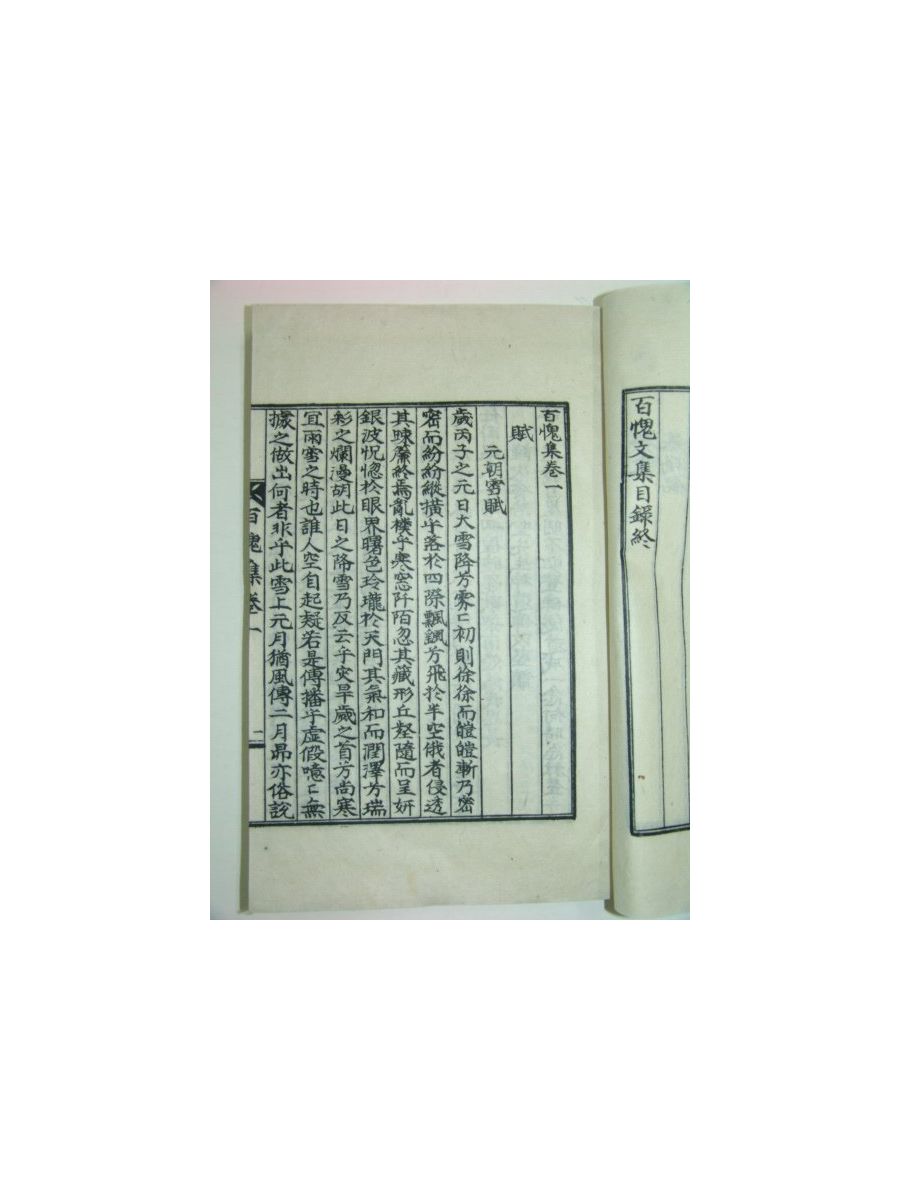 百愧文集目錄終
百愧集卷一
賦
元朝雪賦
歲丙子之元日大雪降芳雰ニ初則徐徐而皚皚斬乃密
密而紛紛縱橫乎落於四際飄颻芳飛於半空俄者侵透
其疎簾終焉亂樸乎寒窓阡陌忽其藏形丘壑隨而呈姸
銀波怳惚於眼界曙色玲瓏於天門其氣和而潤澤芳瑞
彩之爛漫胡此日之降雪乃反云乎灾旱歲之首芳尚寒
宜雨雪之時也誰人空自起疑若是傳播乎虛假噫ニ無
據之做出何者非乎此雪上元月猶風傳二月昴亦俗說
百愧集卷一